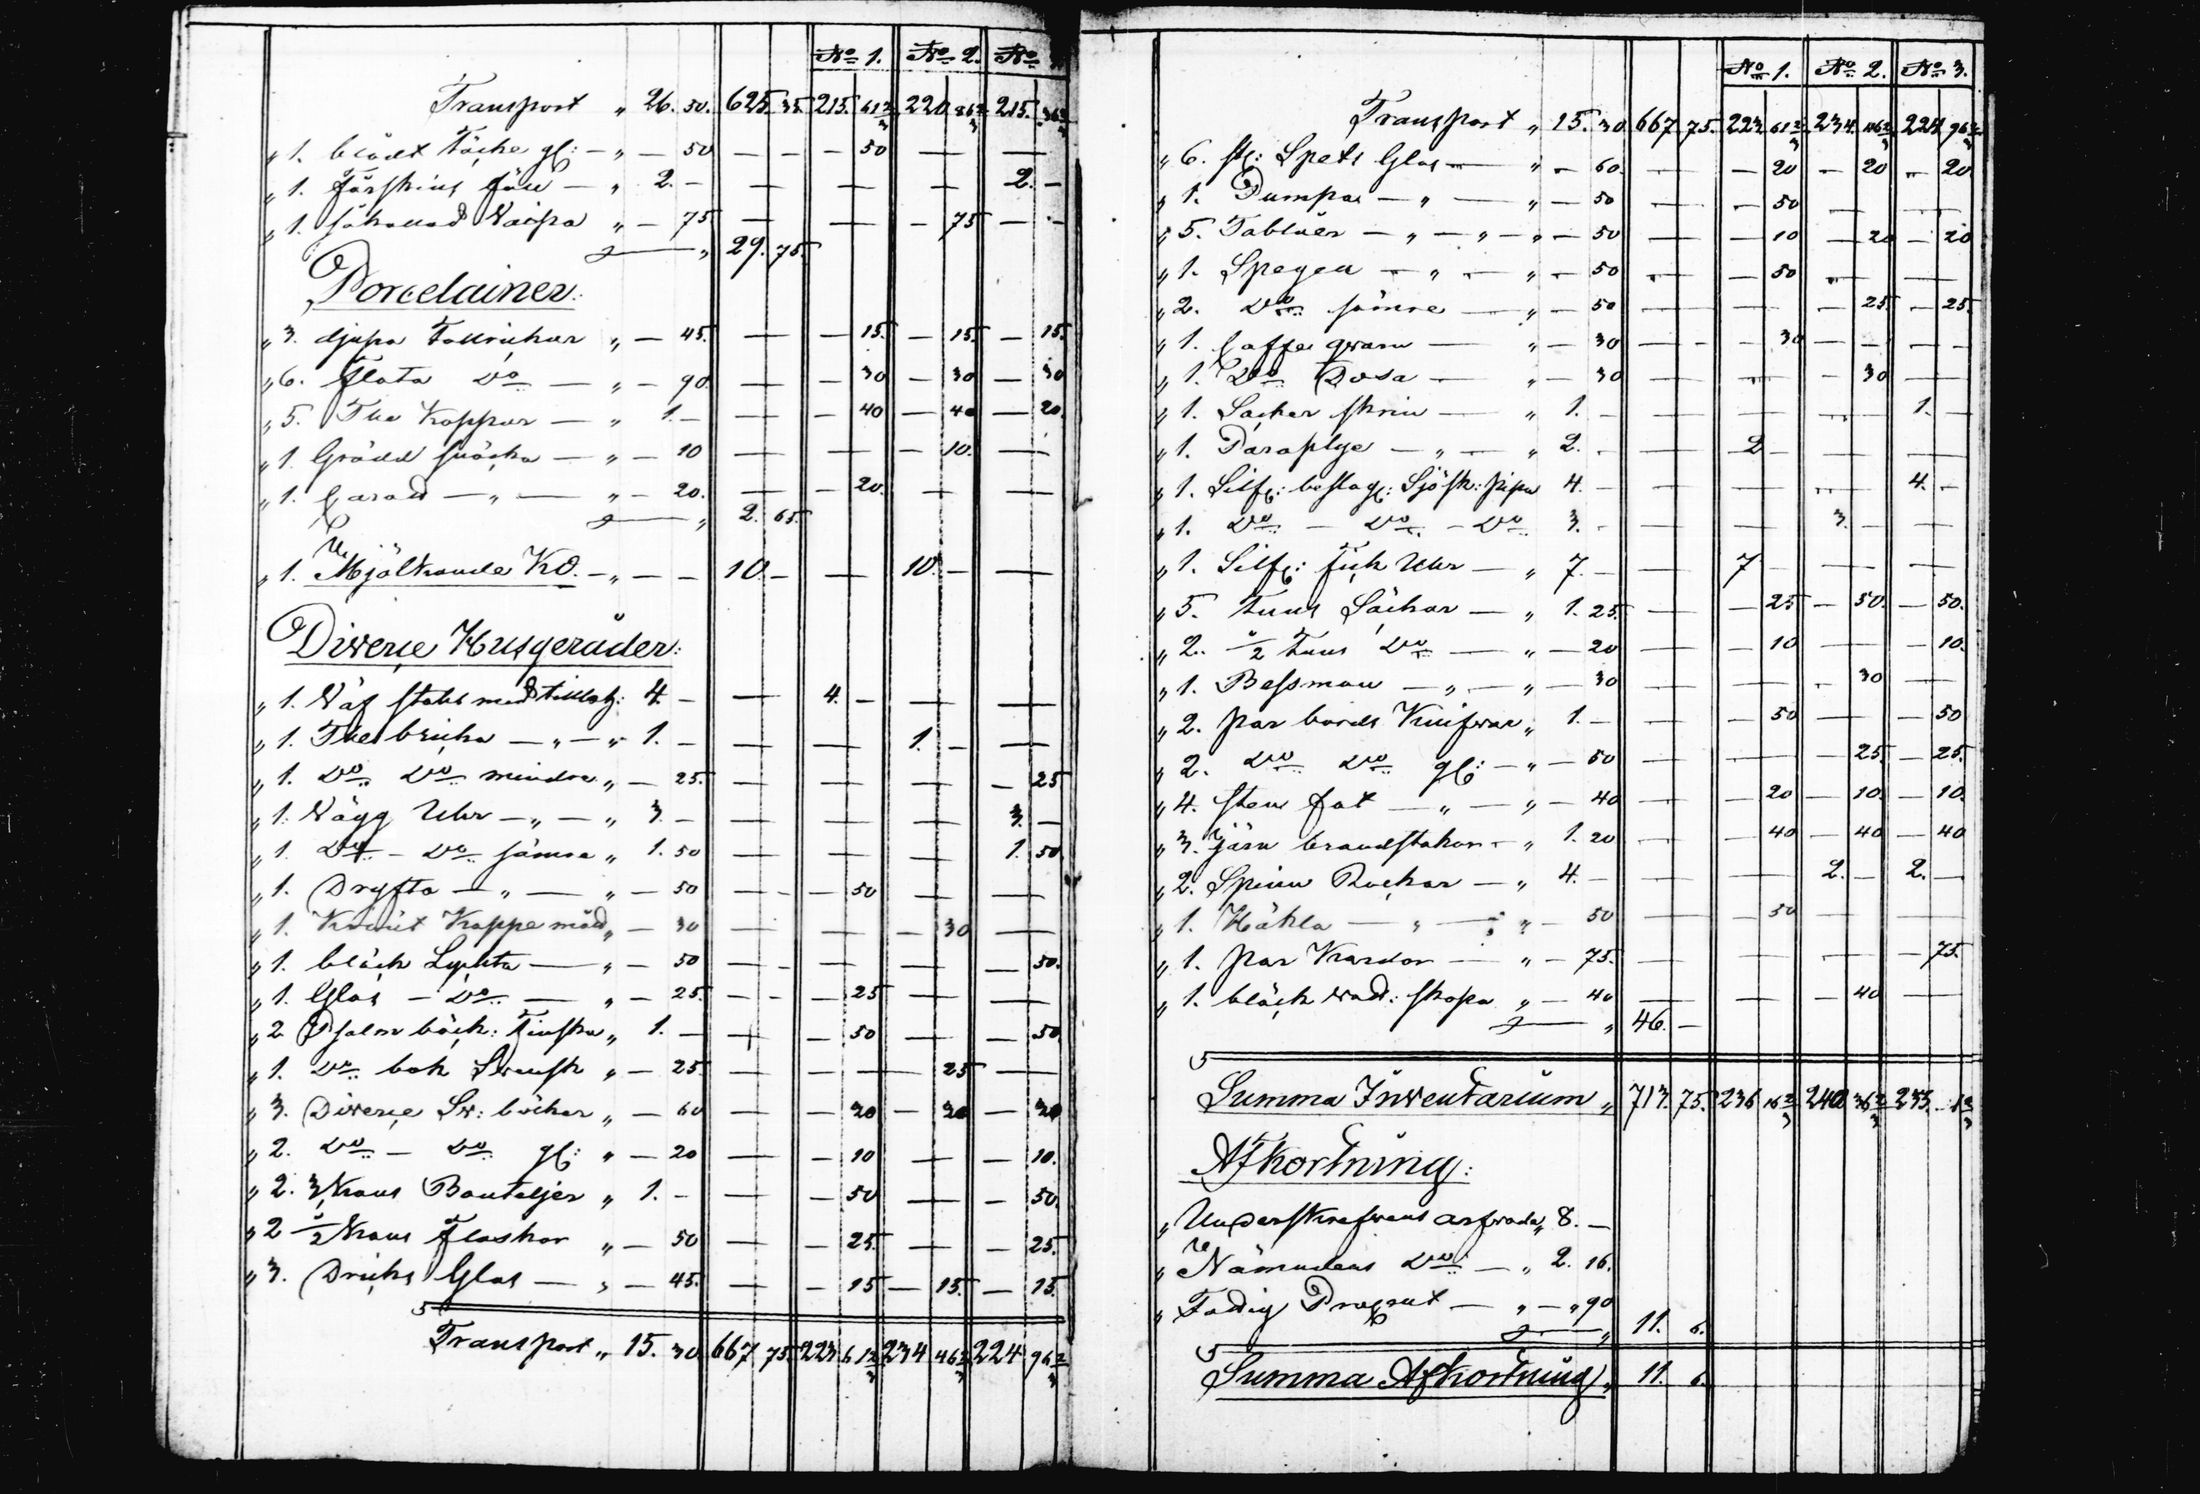 No 1. No 2. No 3.
Transport „ 26. 50. 625. 35. 215. 61 2/3 220 86 2/3 215. 36 2/3
„ 1. blådt Täcke gl: — „ — 50 — — — 50 — —
„ 1. Fårskins fäll — „ 2. — — — — 2. —
„ 1. „ — 75 — — — 75 — —
„ 29. 75.
Porcelainer:
„ 3. djupa Tallrickar „ — 45. — — 15. — 15. — 15.
„ 6. flata Do — „ — 90. — — 30 — 30 — 30
„ 5. The Koppar — „ 1. — — — 40 — 40 — 20.
„ 1. Grädd snäcka — „ — 10 — — — 10. —
„ 1. — „ — „ — 20. — — 20. — —
„ 2. 65.
„ 1. Mjölkande Ko. — „ — — 10. — — 10. — —
Diverse Husgeråder:
„ 1. Väf stohl med tillbeh: 4. — — 4. — — —
„ 1. The bricka — „ — „ 1. — — — 1. — —
„ 1. Do Do mindre „ — 25. — — — — 25
„ 1. Vägg Uhr — „ — „ 3. — — — — 3. —
„ 1. Do — Do sämre „ 1. 50 — — — 1. 50
„ 1. Dryfta — „ — „ — 50 — — — 50 — —
„ 1. Kappe mått „ — 30 — — — 30 —
„ 1. bläck Lyckta — „ — 50 — — — — 50.
„ 1. Glas — Do — „ — 25. — — — 25 — —
„ 2 Psalm böck: Finska „ 1. — — — 50 — — 50
„ 1. Do bok Svensk „ — 25. — — — 25 —
„ 3. Diverse Sv: böcker „ — 60 — — 20 — 20 — 20
„ 2. Do — Do gl: „ — 20 — — 10 — — 10.
„ 2. Kans Bouteljer „ 1. — — — 50 — — 50.
„ 2 1/2 Kans Flaskor „ — 50 — — 25. — — 25.
„ 3. Dricks Glas — „ — 45. — — 15 — 15. — 15.
Transport „ 15. 30 667 75. 223 61 2/3 234 46 2/3 224 96 2/3
No 1. No 2. No 3.
Transport „ 15. 30 667 75. 223. 61 2/3 234. 46 2/3 224. 96 2/3
„ 6. st: Spets Glas — „ — 60. — — 20 — 20 — 20
„ 1. Pumpa — „ — „ — 50 — — 50 — —
„ 5. Tabluer — „ — „ — „ — 50 — — 10 — 20 — 20
„ 1. Spegeu — „ — „ — 50 — — 50 — —
„ 2. Do sämre — „ — 50 — — — 25. — 25.
„ 1. Caffe qvarn — „ — 30 — — 30 — — —
„ 1. Do Dosa — „ — 30 — — — 30 — —
„ 1. Socker skrin — „ 1. — — — — 1. —
„ 1. Paraplye — „ — „ 2. — — 2 — — —
„ 1. Silf: beslag: Sjösk: pipa 4. — — — — 4. —
„ 1. Do — Do — Do 3. — — — 3. — —
„ 1. Silf: fick Uhr — „ 7. — — 7 — — —
„ 5. Tuns Säckar — „ 1. 25. — — 25 — 50. — 50.
„ 2. 1/2 Tuns Do — „ — 20 — — 10 — — 10.
„ 1. Bessman — „ — „ — 30 — — — 30 —
„ 2. par bords Knifvar „ 1. — — — 50 — — 50
„ 2. Do Do gl: — „ — 50 — — — 25. — 25.
„ 4. sten fat — „ — „ — 40 — — 20 — 10. — 10.
„ 3. Järn brandstakar — „ 1. 20 — — 40 — 40 — 40
„ 2. Spinn Rockar — „ 4. — — — 2. — 2. —
„ 1. Häkla — „ — „ — 50 — — 50 — —
„ 1. par Kardor — „ — 75. — — — — 75.
„ 1. bläck vatt: skopa „ — 40 — — — 40 —
„ 46. —
Summa Inventarium „ 713. 75. 236 16 2/3 240 36 2/3 233. 1 2/3
Afkortning:
„ Underskrefvens arfvode „ 8. —
„ Nämndens Do — „ 2. 16.
„ Fattig Procent — „ — „ 90
„ 11. 6.
Summa Afkortning „ 11. 6.